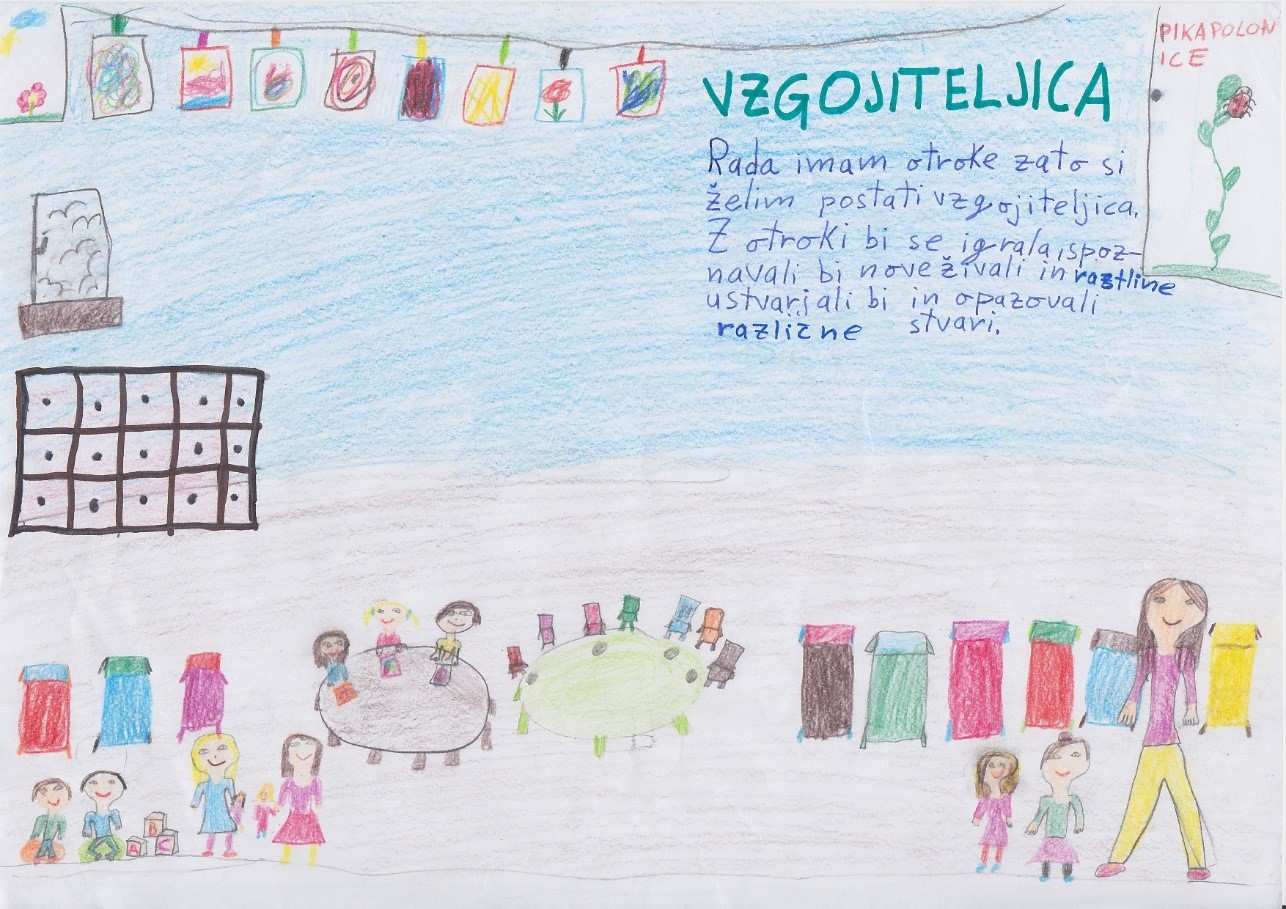 VZGOJITELJICA
Rada imam otroke zato si
želim postati vzgojiteljica.
Z otroki bi se igrala, spoz-
navali bi nove živali in rastline
ustvarjali bi in opazovali
različne stvari.
PIKAPOLON
ICE
A
B
C